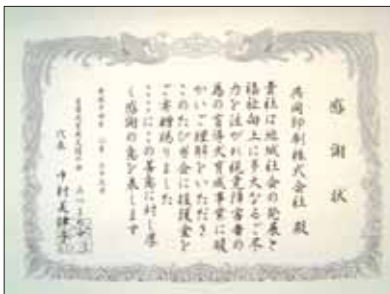 感謝状
共同印刷株式会社 殿
貴社は地域社会の発展と
福祉向上に多大なるご尽
力を注がれ視覚障害者の
為の盲導犬育成事業に暖
かいご理解をいただき
このたび当会に援護金を
ご寄贈賜りました
ここにこの善意に対し厚
く感謝の意を表します
代表 中村